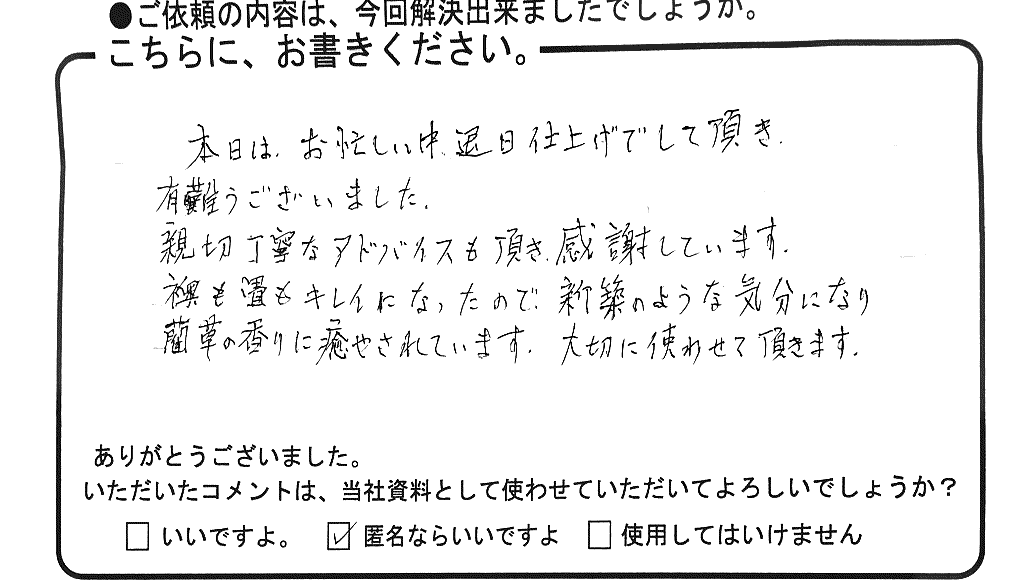 ●ご依頼の内容は、今回解決出来ましたでしょうか。
こちらに、お書きください。
本日は、お忙しい中、退日仕上げでして頂き、
有難うございました。
親切丁寧なアドバイスも頂き、感謝しています。
襖も畳もキレイになったので、新築のような気分になり
藺草の香りに癒やされています。大切に使わせて頂きます。
ありがとうございました。
いただいたコメントは、当社資料として使わせていただいてよろしいでしょうか?
□ いいですよ。 ☑ 匿名ならいいですよ □ 使用してはいけません